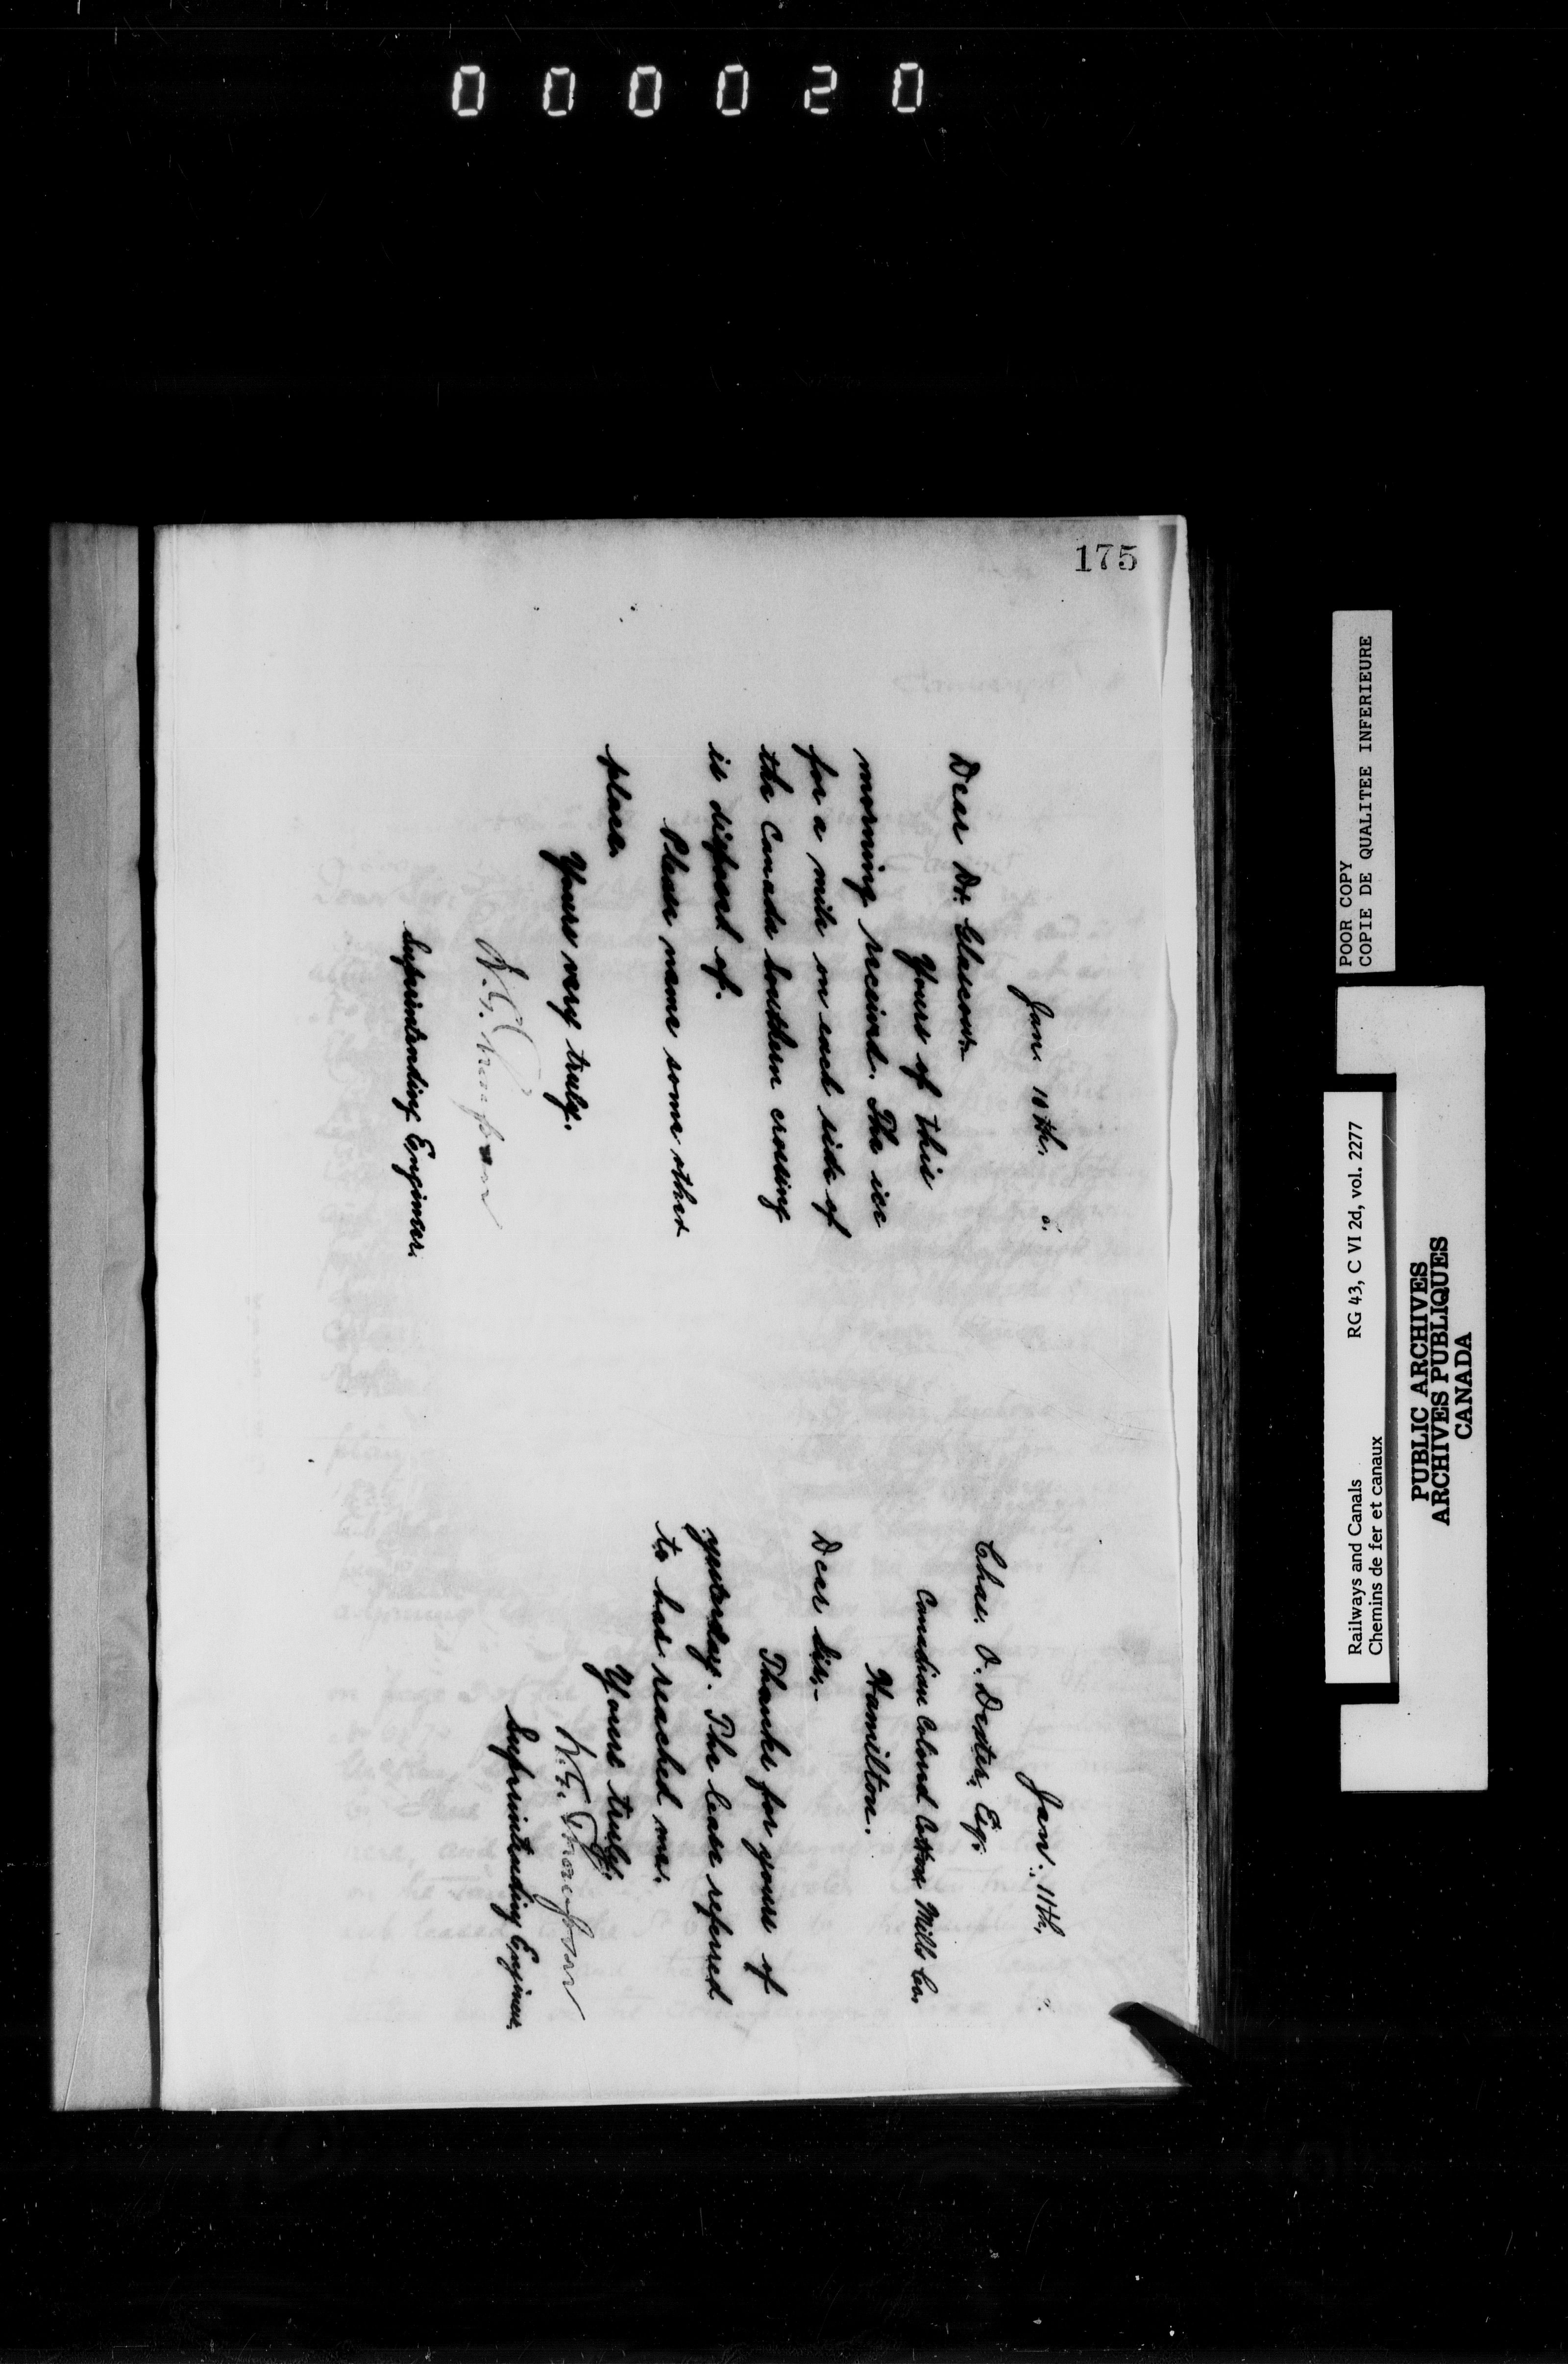 000020
175
Jan. 10th.
Dear Dr. Glascow—
Yours of this
morning received. The ice
for a mile on each side of
the Canada Southern crossing
is disposed of.
Please name some other
place.
Yours very truly.
W.G. Thompson
Superintending Engineer.
Jan. 11th,
Chas. O. Dexter, Esq.
Canadian Colored Cotton Mills Co.
Hamilton.
Dear Sir,—
Thanks for yours of
yesterday. The lease referred
to has reached me.
Yours truly.
W.G. Thompson
Superintending Engineer.
POOR COPY
COPIE DE QUALITEE INFERIEURE
Railways and Canals RG 43, C VI 2d, vol. 2277
Chemins de fer et canaux
PUBLIC ARCHIVES
ARCHIVES PUBLIQUES
CANADA